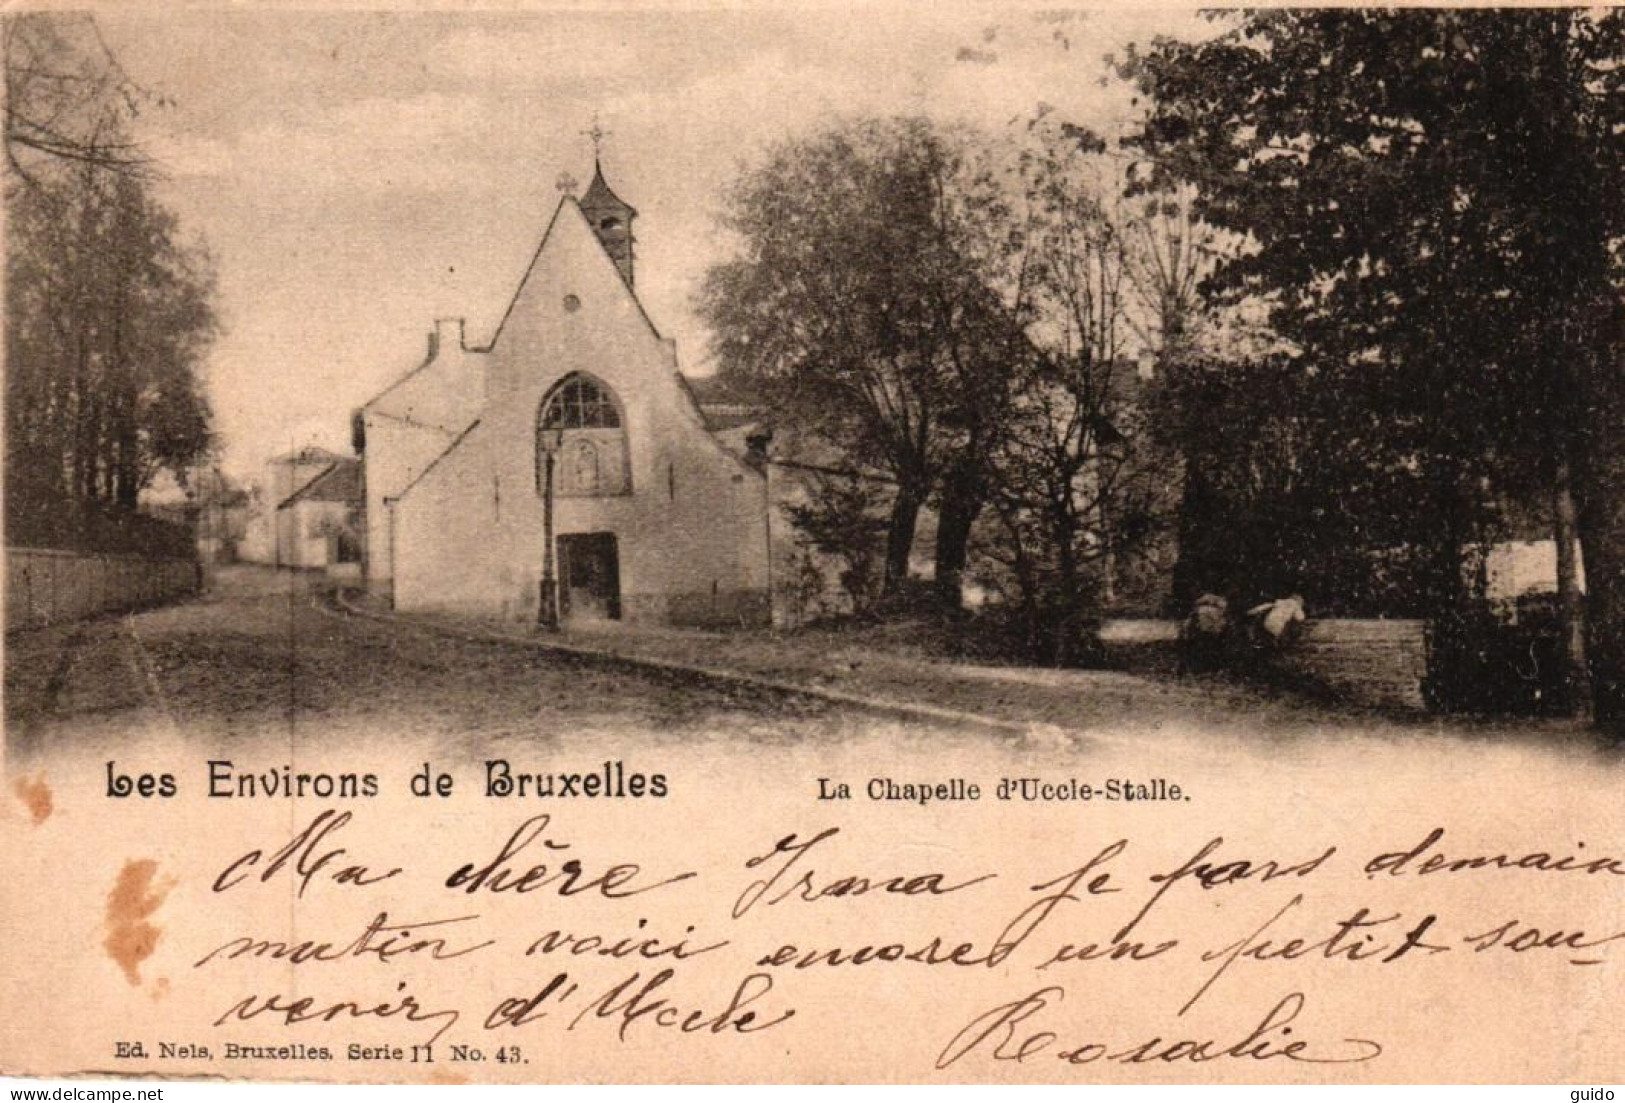 Les Environs de Bruxelles
La Chapelle d'Uccle-Stalle.
Ma chère Irma je pars demain
matin voici encore un petit sou-
venir d'Uccle
Rosalie
Ed. Nels, Bruxelles. Serie 11 No. 43.
www.delcampe.net
guido